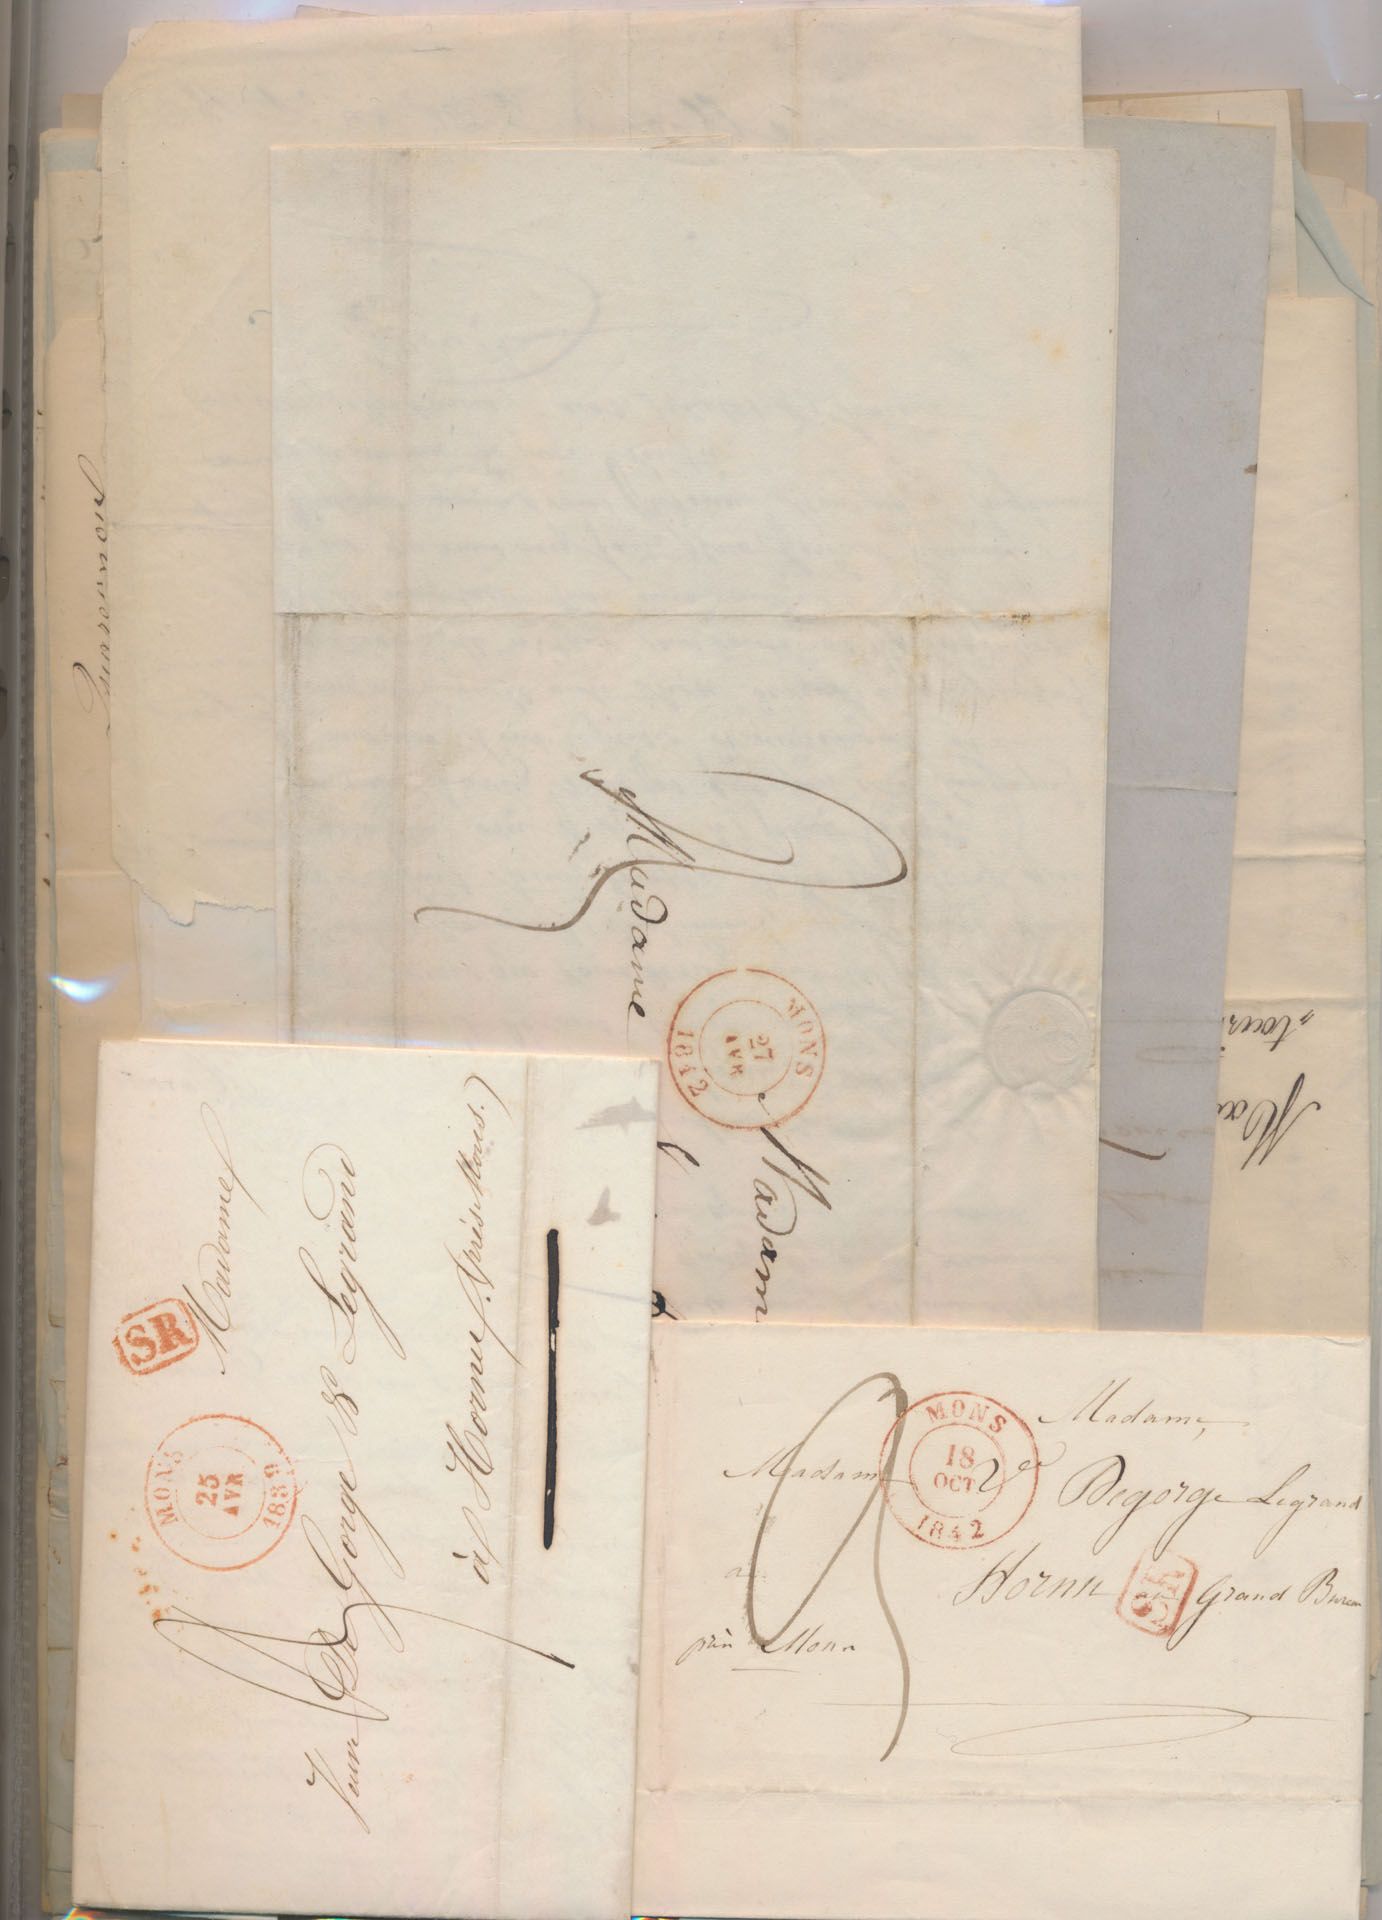 Madame
MONS
27
AVR
1842
Madam
SR
MONS
25
AVR
1839
Madame
Veuve De Gorge & Legrand
à Hornu. (près Mons.)
MONS
18
OCT
1842
Madame,
Madame Vve Degorge Legrand
a Hornu
SR
Grand Bureau
près Mons